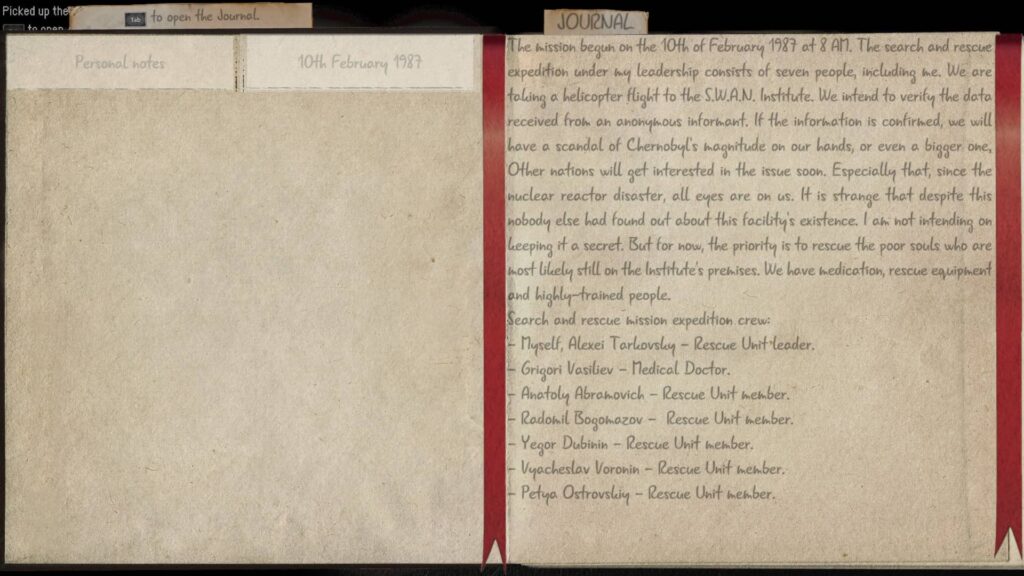 Picked up the
Tab to open the Journal.
to open
JOURNAL
Personal notes
10th February 1987
The mission begun on the 10th of February 1987 at 8 AM. The search and rescue
expedition under my leadership consists of seven people, including me. We are
taking a helicopter flight to the S.W.A.N. Institute. We intend to verify the data
received from an anonymous informant. If the information is confirmed, we will
have a scandal of Chernobyl's magnitude on our hands, or even a bigger one,
Other nations will get interested in the issue soon. Especially that, since the
nuclear reactor disaster, all eyes are on us. It is strange that despite this
nobody else had found out about this facility's existence. I am not intending on
keeping it a secret. But for now, the priority is to rescue the poor souls who are
most likely still on the Institute's premises. We have medication, rescue equipment
and highly-trained people.
Search and rescue mission expedition crew:
- Myself, Alexei Tarkovsky - Rescue Unit leader.
- Grigori Vasiliev - Medical Doctor.
- Anatoly Abramovich - Rescue Unit member.
- Radomil Bogomazov - Rescue Unit member.
- Yegor Dubinin - Rescue Unit member.
- Vyacheslav Voronin - Rescue Unit member.
- Petya Ostrovskiy - Rescue Unit member.